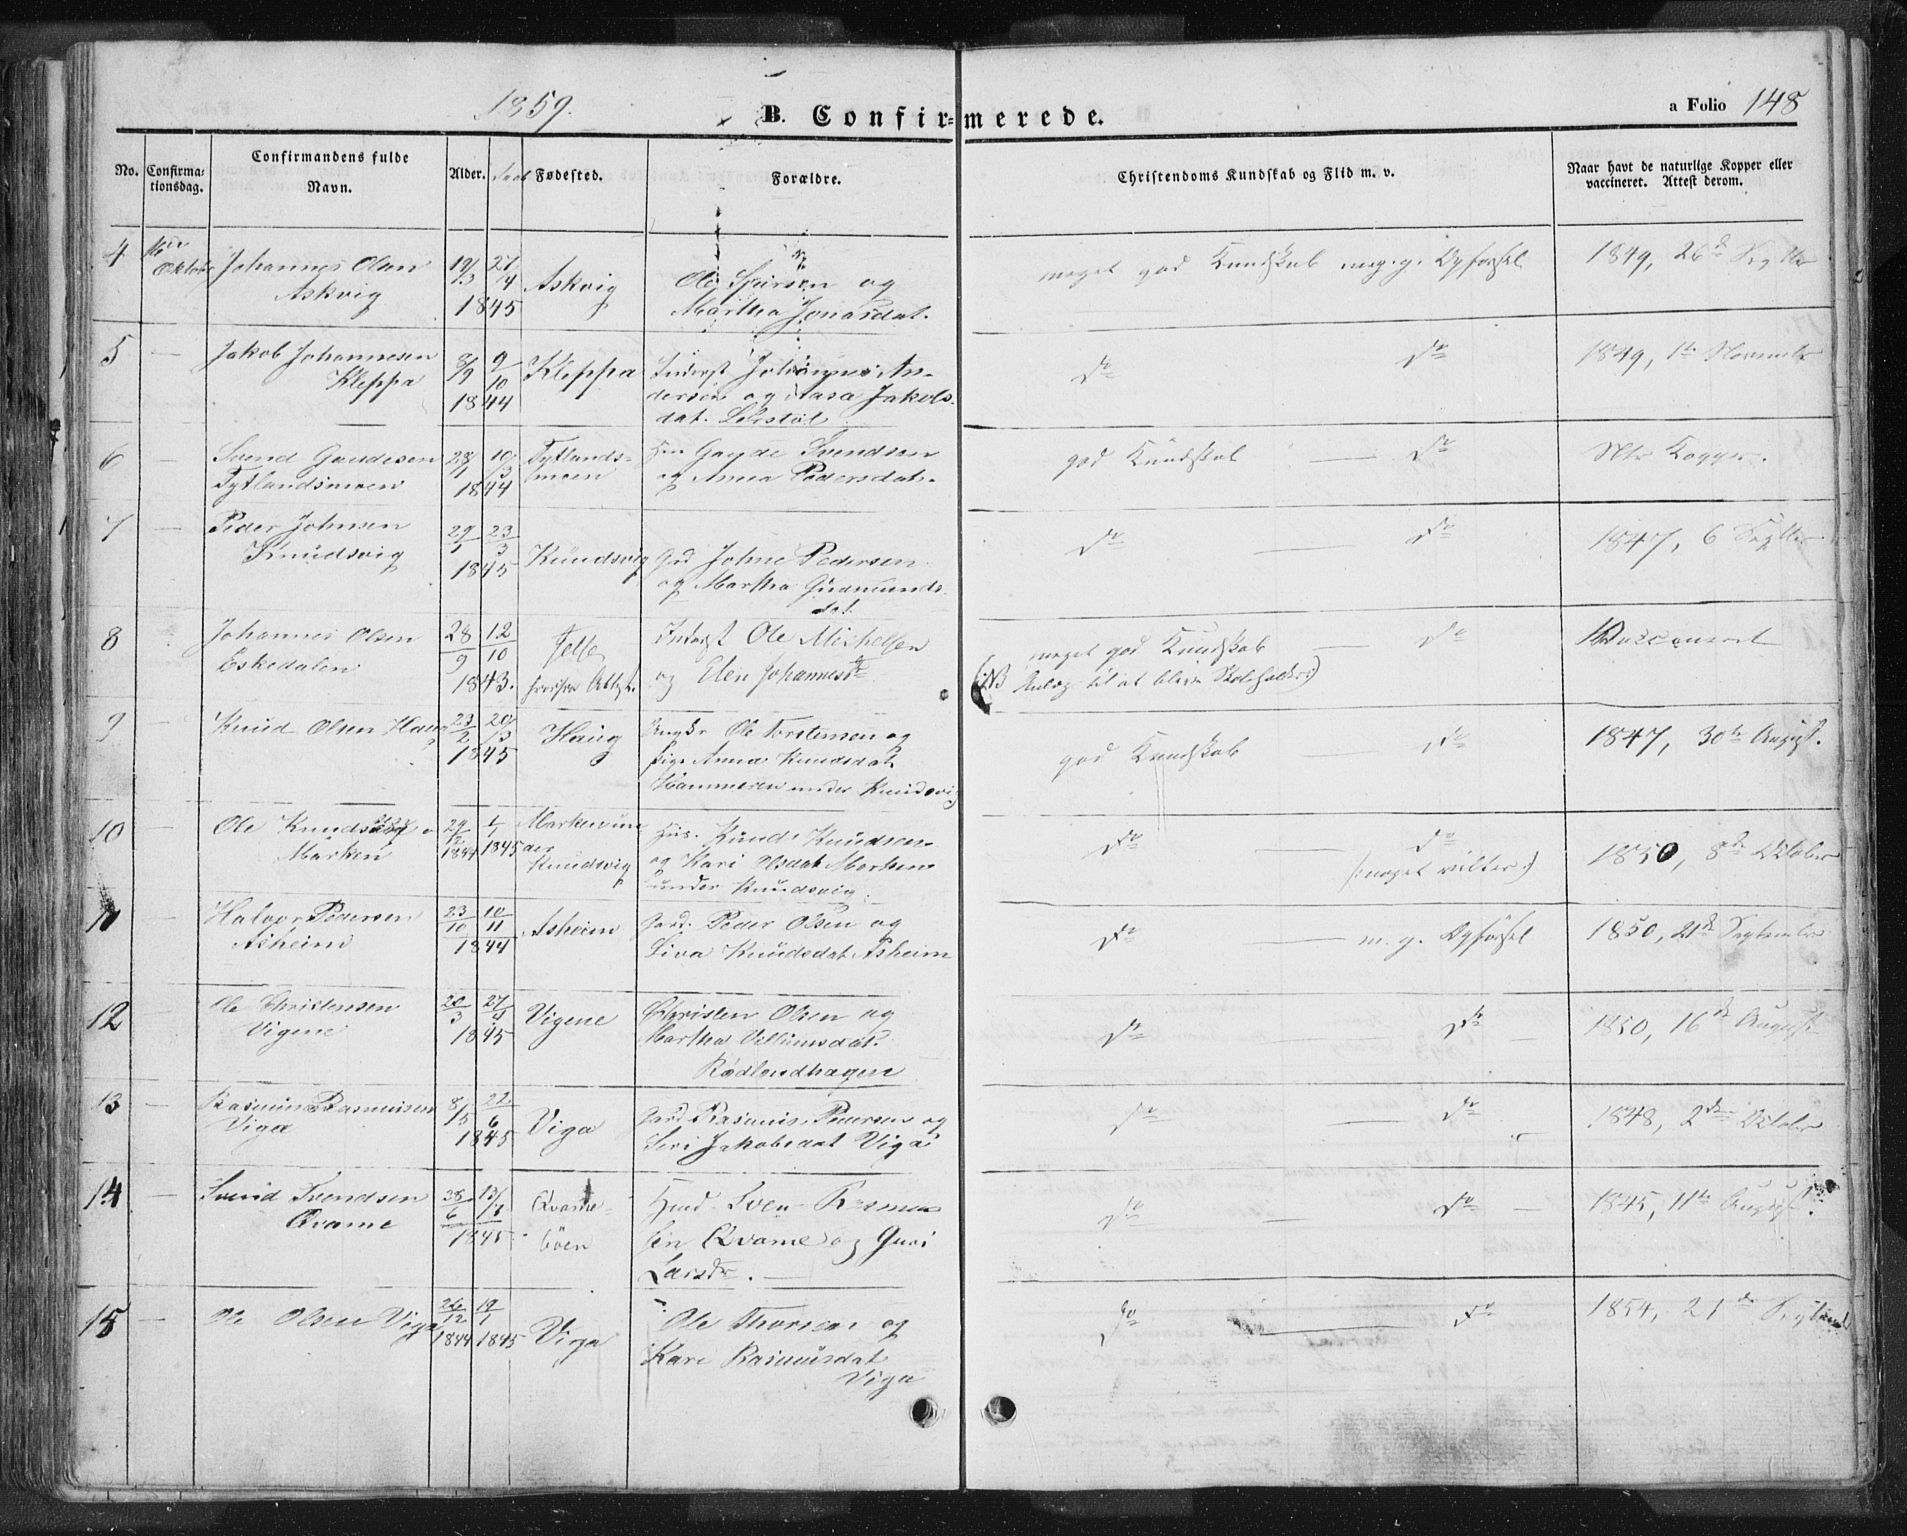 1859.
B. Confirmerede.
a Folio 148
No.
Confirma-
tionsdag.
Confirmandens fulde
Navn.
Alder.
Fødested.
Forældre.
Christendoms Kundskab og Flid m. v.
Naar havt de naturlige Kopper eller
vaccineret. Attest derom.
4
Oktob
Johannes Olsen
Askvig
19/3 27/4
1845
Askvig
Ole og
Martha Jonasdat.
meget god Kundskab meg. g. Opførsel
1849, 26de Septbr
5
—
Jakob Johannesen
Kleppa
8/9 9/10
1844
Kleppa
Inderst Johannes An-
dersen og Aasa Jakobs-
dat.
do do
1849, 1te Novembr
6
—
Svend Gaudesen
Tytlandsmoen
28/1 10/3
1844
Tytlands-
moen
Gaude Svendsen
og Anna Pedersdat.
god Kundskab — do
Kopper.
7
—
Peder Johnsen
Knudsvig
29/1 23/3
1845
Knudsvig
Grd Johne Pedersen
og Martha Gudmunds-
dat.
do — do
1847, 6 Septbr
8
Johannes Olsen
Eskedalen
28/9 12/10
1843.
Attest.
Inderst Ole Michelsen
og Elen Johannesd
meget god Kundskab — do
(NB Anlæg til at blive Skoleholder)
Vaccineret
9
—
Knud Olsen Haug
23/2 20/3
1845
Haug
Ungkr Ole Torstensen og
Pige Anna Knudsdat.
Hammeren under Knudsvig
god Kundskab — do
1847, 30te August.
10
—
Ole Knudsen
Marken
29/12 1/1
1844 1845
Marken un
der
Knudsvig
Hus. Knud Knudsen
og Kari Olsdat Marken
under Knudsvig.
do — do
1850, 8de Oktober
11
—
Halvor Pedersen
Asheim
23/10 10/11
1844
Asheim
Gard. Peder Olsen og
Siva Knudsdat Asheim
do — m. g. Opførsel
1850, 21de September
12
—
Ole Christensen
Vigene
20/3 27/4
1845
Vigene
Christen Olsen og
Martha Villumsdat.
Rødlandhagen
do do
1850, 16de August
13
—
Rasmus Rasmusen
Viga
8/5 22/6
1845
Viga
Gard Rasmus Pedersen og
Siri Jakobsdat Viga
do — do
1848, 2den Oktober
14
—
Svend Svendsen
Qvame
28/6 13/7
1845
Qvame-
böen
Sven Rasmus
sen Qvame og Guri
Larsdr. —
do — do —
1845, 11te August.
15
—
Ole Olsen Viga
26/12 19/1
1844 1845
Viga
Ole Thorsen og
Kari Rasmusdat
Viga
do — do
1854, 21de